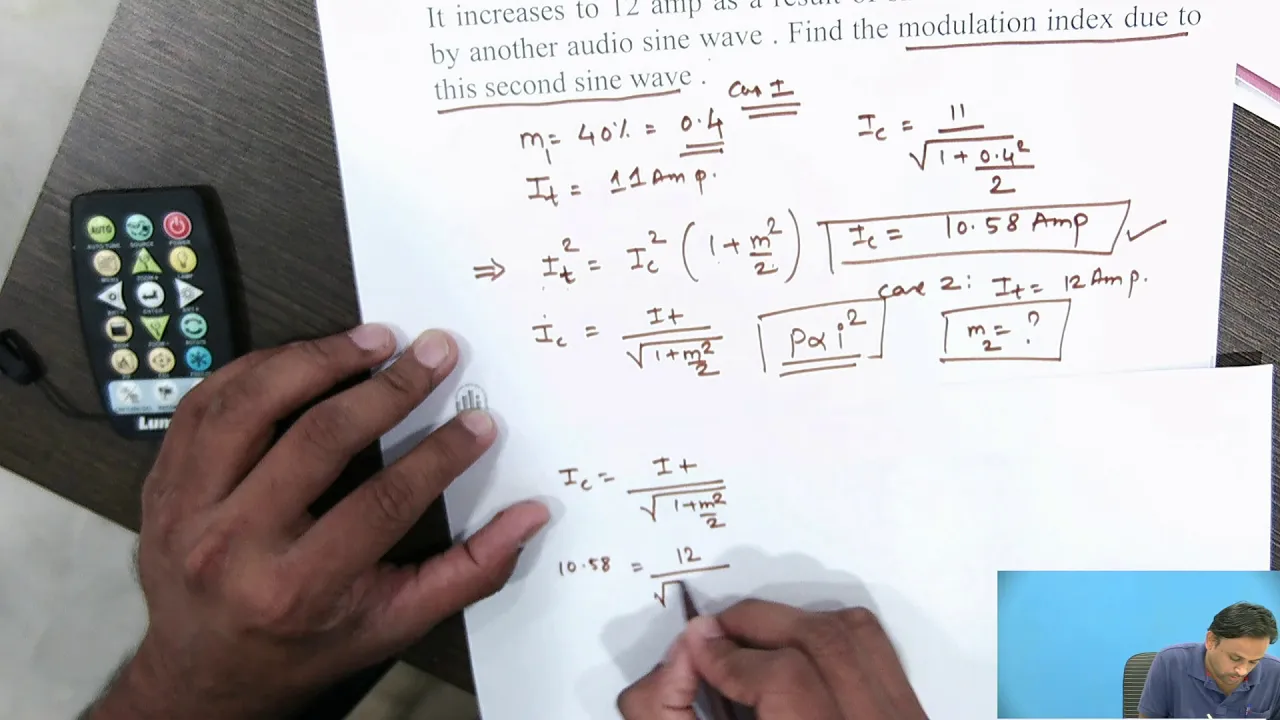 It increases to 12 amp as a result of
by another audio sine wave . Find the modulation index due to
this second sine wave .
Case I
m₁ = 40% = 0.4
I_t = 11 Amp.
⇒ I_t² = I_c² (1 + m²/2)
I_c = I_t / √(1 + m²/2)
P ∝ i²
I_c = 11 / √(1 + 0.4²/2)
I_c = 10.58 Amp ✓
case 2: I_t = 12 Amp.
m₂ = ?
I_c = I_t / √(1 + m²/2)
10.58 = 12 / √
AUTO
SOURCE
POWER
MENU
ENTER
Lum